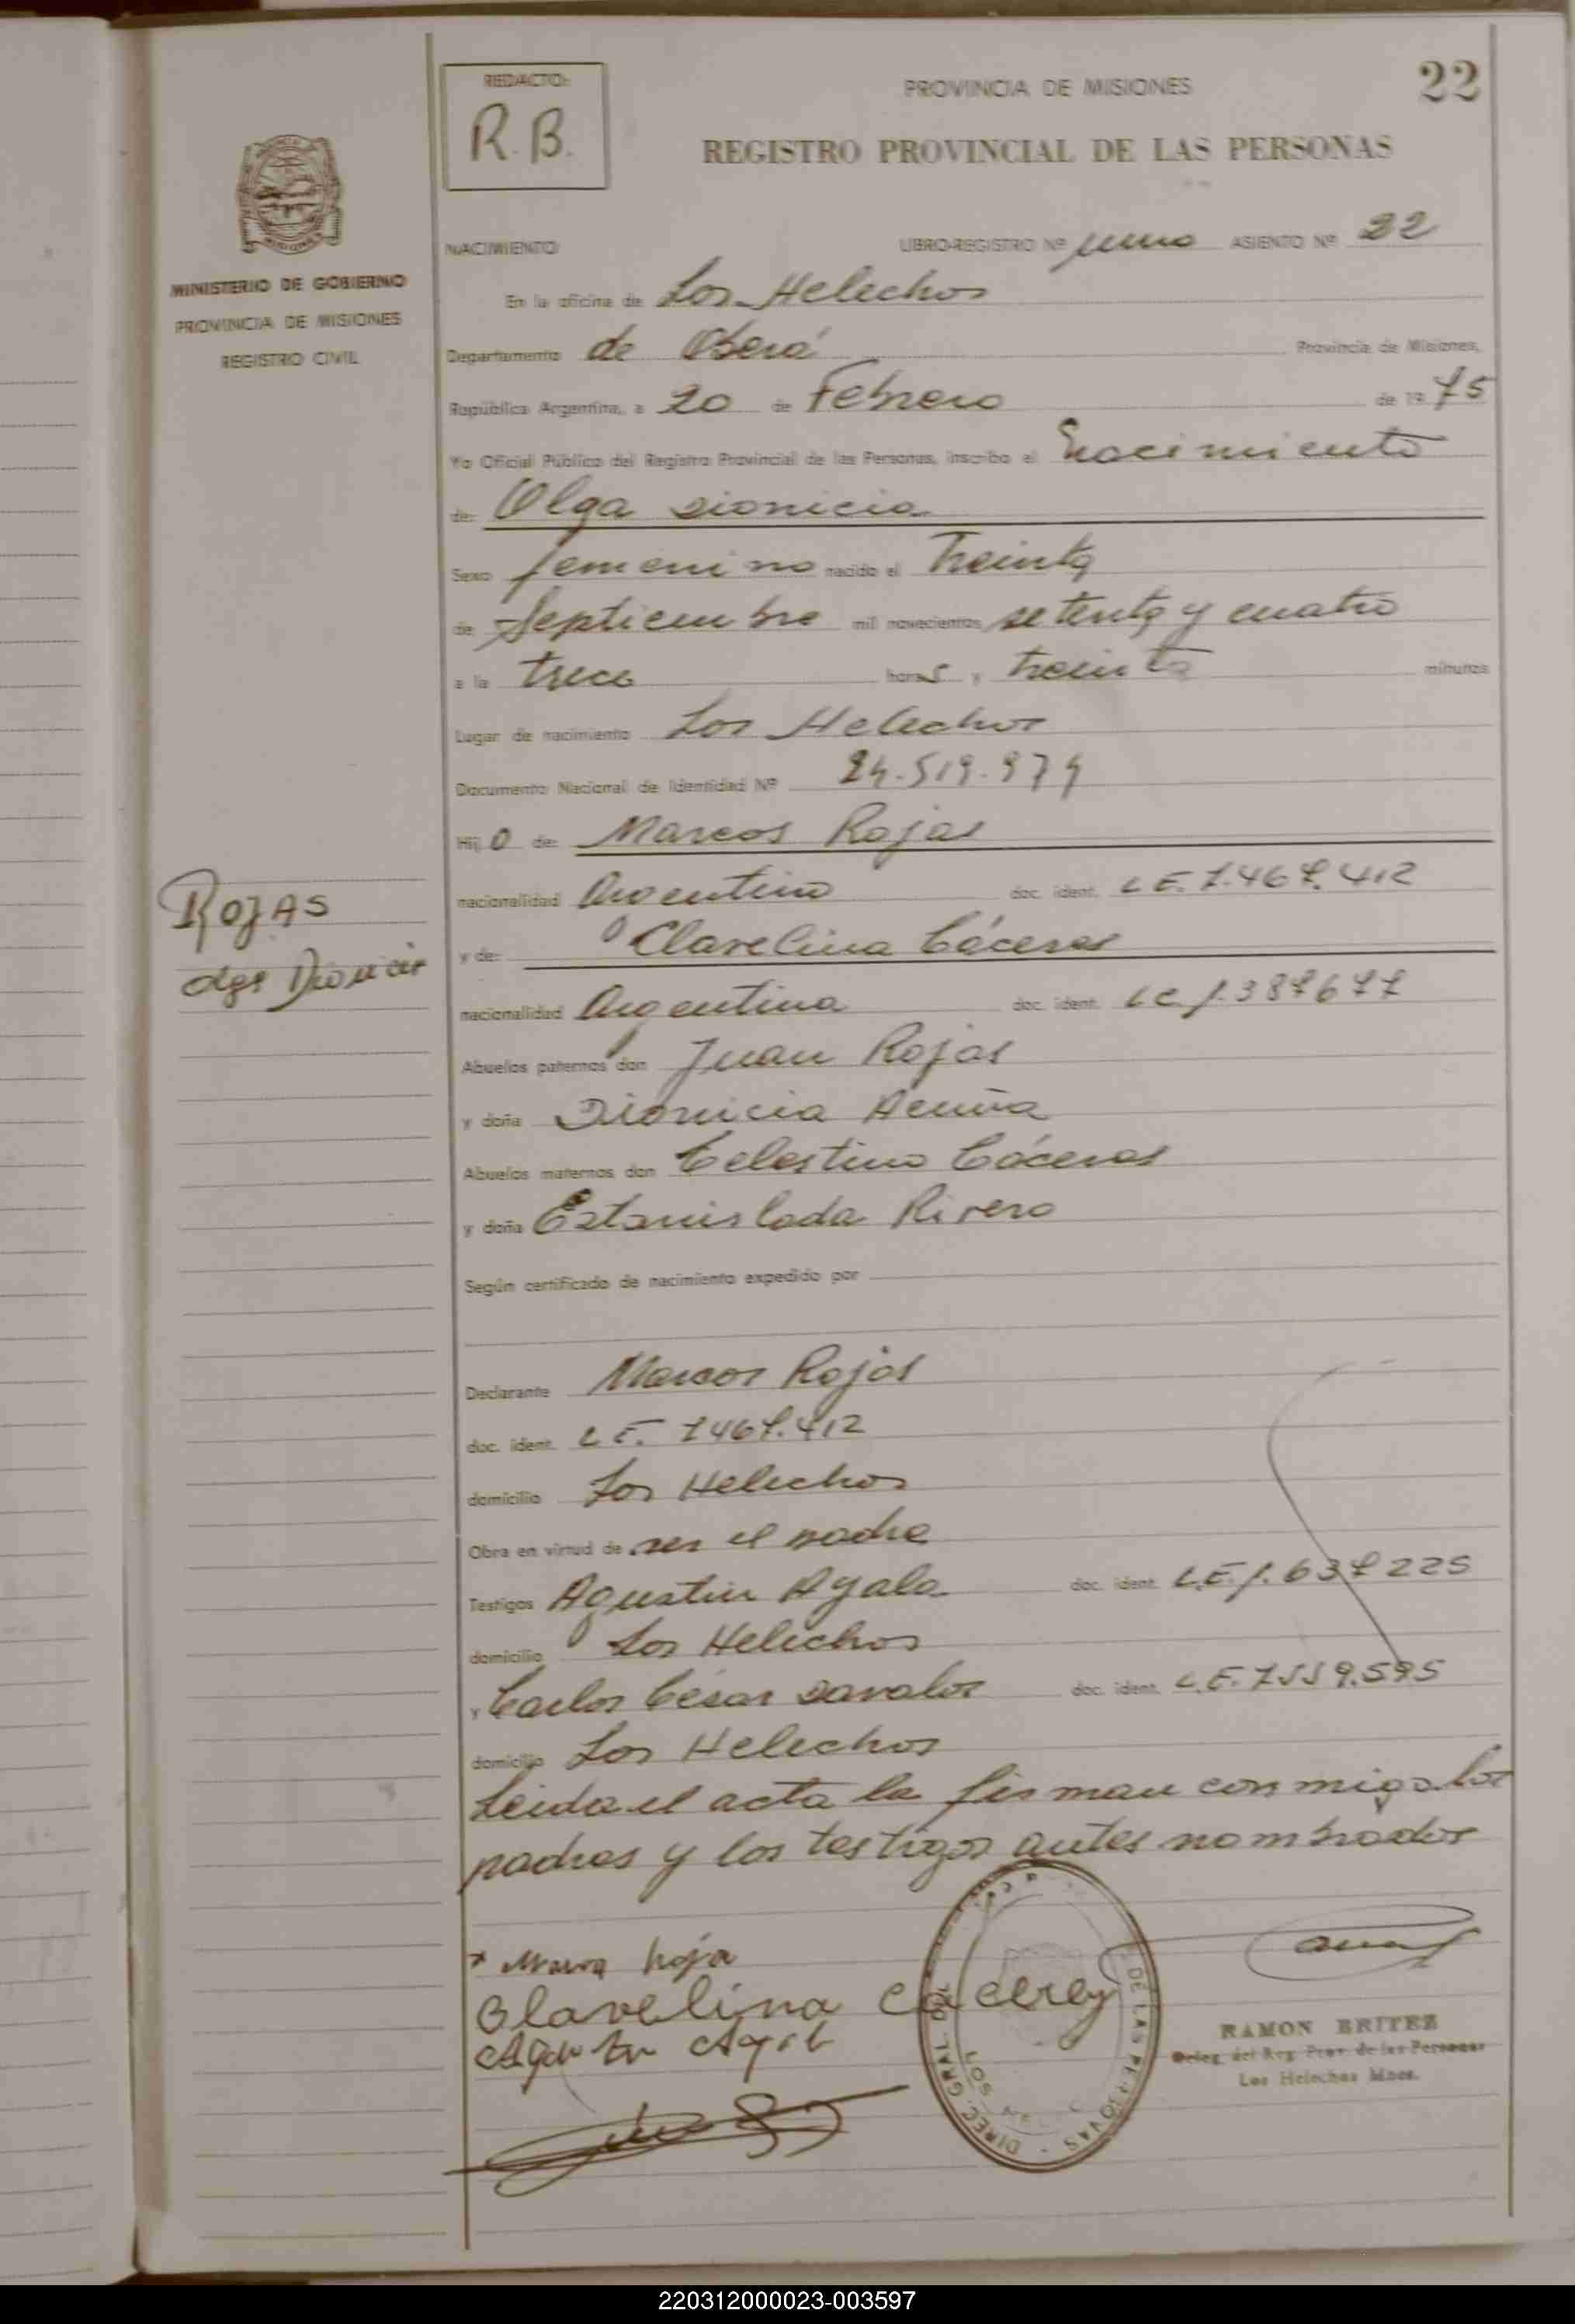 22
REDACTO:
R.B.
PROVINCIA DE MISIONES
REGISTRO PROVINCIAL DE LAS PERSONAS
MINISTERIO DE GOBIERNO
PROVINCIA DE MISIONES
REGISTRO CIVIL
NACIMIENTO LIBRO-REGISTRO Nº uno ASIENTO Nº 22
En la oficina de Los Helechos
Departamento de Oberá Provincia de Misiones,
República Argentina, a 20 de Febrero de 1975
Yo Oficial Público del Registro Provincial de las Personas, inscribo el nacimiento
de: Olga Dionicia
Sexo femenino nacido el Treinta
de Septiembre mil novecientos setenta y cuatro
a la trece horas y treinta minutos
Lugar de nacimiento Los Helechos
Documento Nacional de Identidad Nº 24.519.974
Hijo de: Marcos Rojas
nacionalidad Argentino doc. ident. L.E. 7.467.412
y de: Clavelina Cáceres
nacionalidad Argentina doc. ident. LC 1.387677
ROJAS
Olga Dionicia
Abuelos paternos don Juan Rojas
y doña Dionicia Acuña
Abuelos maternos don Celestino Cáceres
y doña Estanislada Rivero
Según certificado de nacimiento expedido por
Declarante Marcos Rojas
doc. ident. L.E. 7467.412
domicilio Los Helechos
Obra en virtud de ser el padre
Testigos Agustin Ayala doc. ident. L.E. 1.637225
domicilio Los Helechos
y Carlos César Davalos doc. ident. L.E. 7559.595
domicilio Los Helechos
Leida el acta la firman con migo los
padres y los testigos antes nombrados
Clavelina Caceres
DIREC. GRAL. DEL DE LAS PERSONAS
LOS HELEC
RAMON BRITEZ
Deleg. del Reg. Prov. de las Personas
Los Helechos Mnes.
220312000023-003597